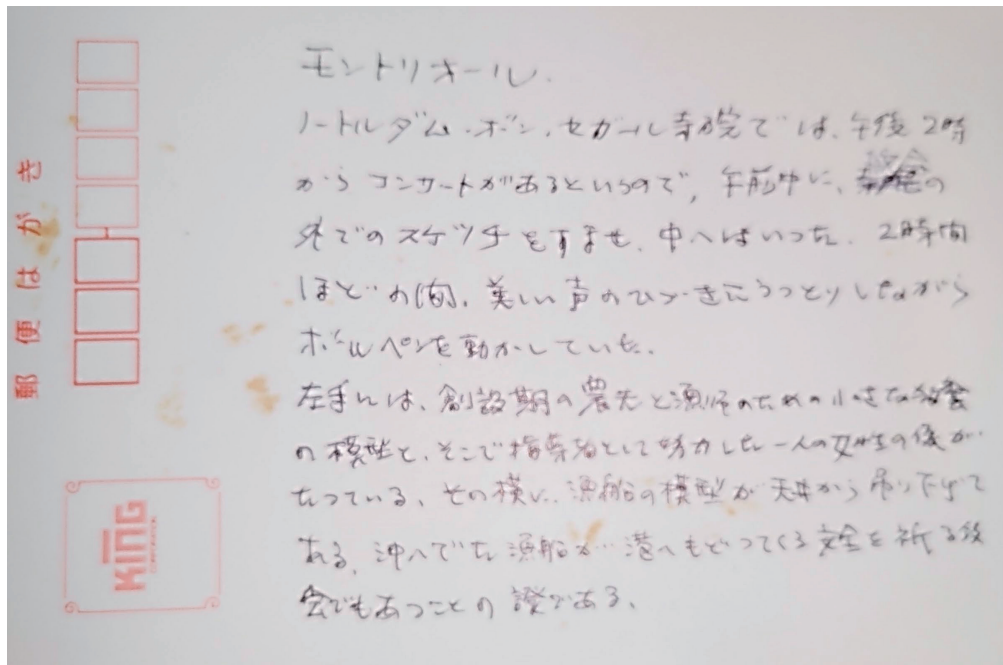 郵便はがき
モントリオール.
ノートルダム・ボン・セガール寺院では、午後2時
からコンサートがあるというので、午前中に、の
外でのスケッチをすませ、中へはいった。2時間
ほどの間、美しい声のひびきにうっとりしながら
ボールペンを動かしていた。
左手には、創設期の農夫と漁師のための小さな教会
の模型と、そこで指導者として努力した一人の女性の像が
たっている、その横に、漁船の模型が天井から吊り下げて
ある、沖へでた漁船が港へもどってくる安全を祈る教
会でもあったことの證である、
KING